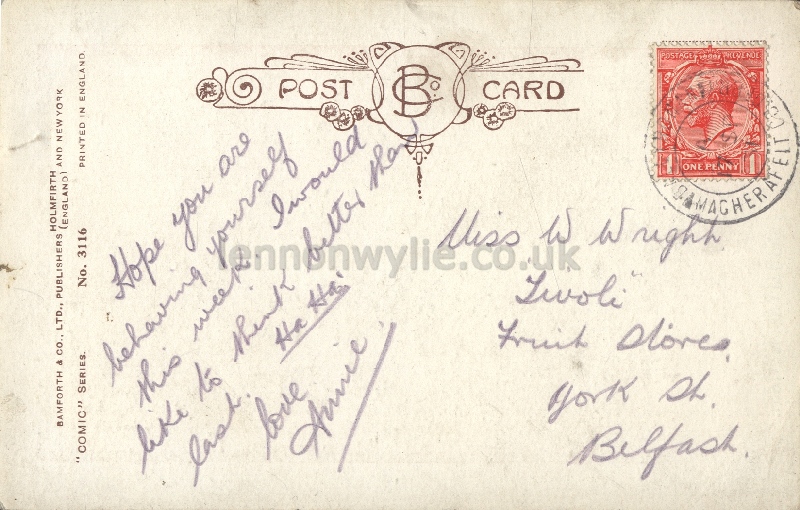 POST CARD
B Co
POSTAGE REVENUE
ONE PENNY
1 1
MAGHERAFELT
BAMFORTH & CO., LTD., PUBLISHERS HOLMFIRTH (ENGLAND) AND NEW YORK
"COMIC" SERIES. No. 3116 PRINTED IN ENGLAND.
Hope you are
behaving yourself
this week. I would
like to think better than
last. Ha Ha.
love
Annie.
Miss W Wright
"Tivoli"
Fruit Stores
York St.
Belfast.
lennonwylie.co.uk